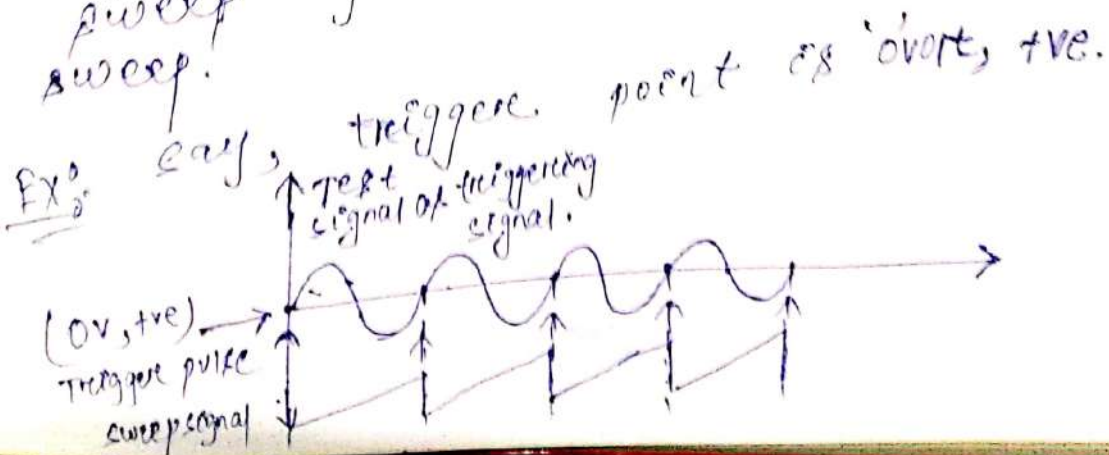 sweep
sweep.
Ex: say, treigger point is 'ovolt, +ve.
Test
signal or treiggering
signal.
(0v, +ve)
Treigger pulse
sweepsignal